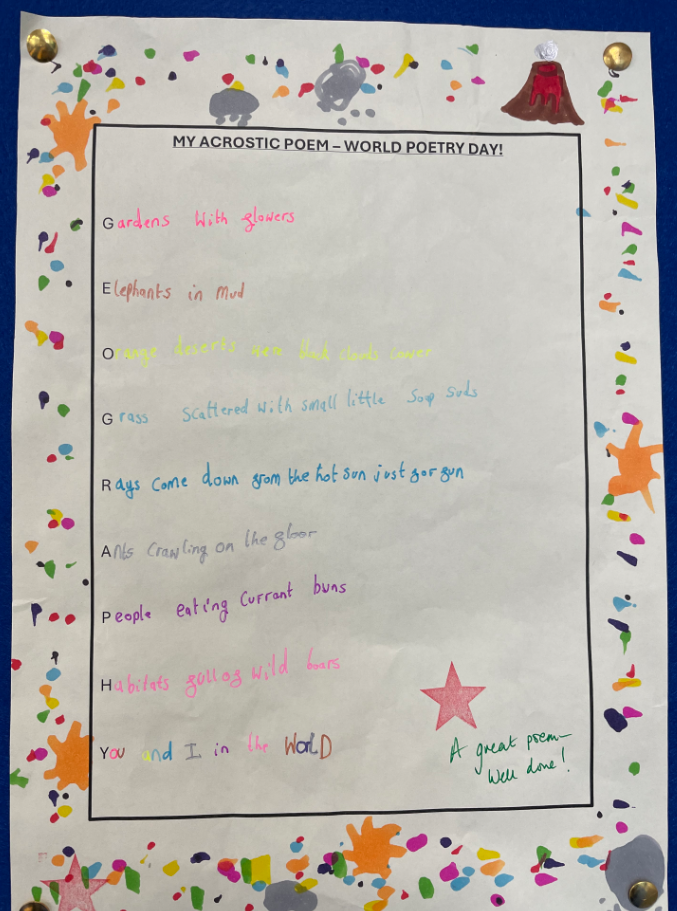 MY ACROSTIC POEM – WORLD POETRY DAY!
Gardens with flowers
Elephants in mud
Orange deserts were black clouds cower
Grass scattered with small little soap suds
Rays come down from the hot sun just for fun
Ants crawling on the floor
People eating currant buns
Habitats full of wild boars
You and I in the WorLD
A great poem –
Well done!